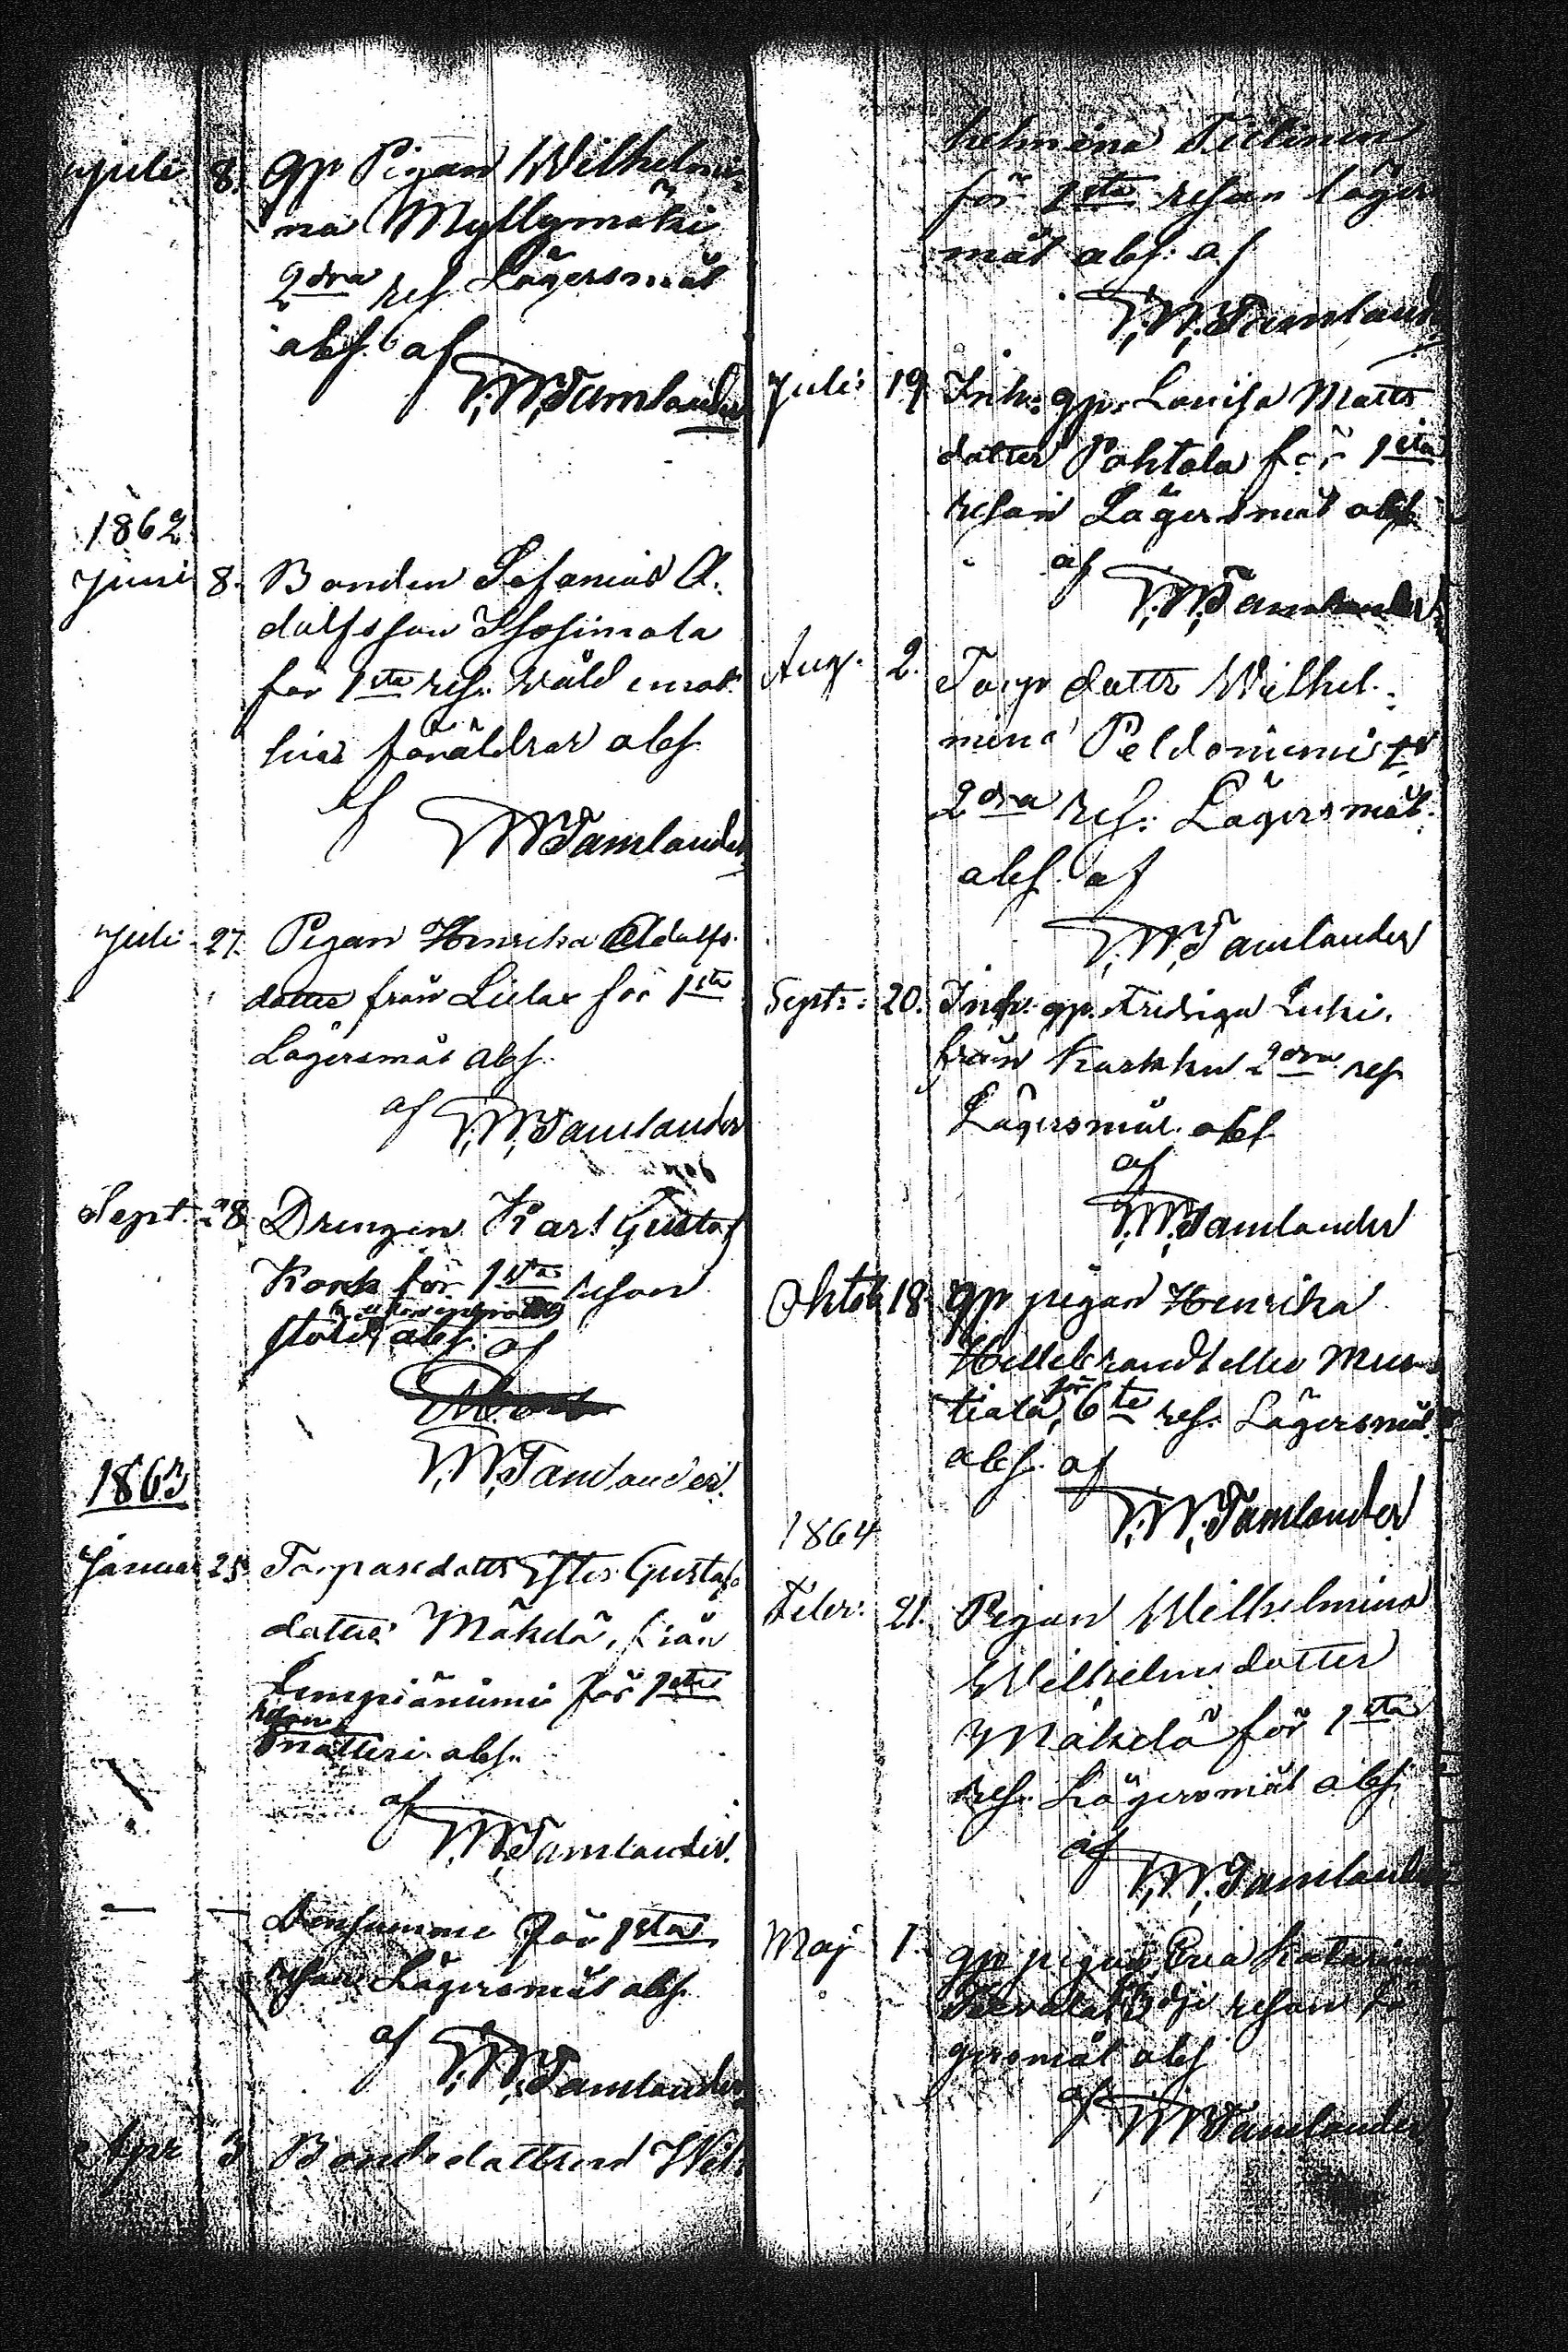 Juli 8. gp Pigan Wilhelmi-
na Myllymäki
2dra res Lägersmål
abs. af
T. W. Tamlander
1862
Juni 8. Bonden Sefanias A.
dolfsson
för 1sta res. våld emot
föräldrar abs.
af T. W. Tamlander
Juli 27. Pigan Henrika Adolfs
dotter från för 1sta
Lägersmål abs.
af T. W. Tamlander
Sept. 28 Drengen Karl Gustaf
för 1sta resan
stöld abs. af
T. W. Tamlander
1863
Januar 25 Torparedottr Ester Gustafs
dotter Mäkelä, från
Lempiäniemi för 1sta
resan
abs.
af
T. W. Tamlander
— — Densamme för 1sta
resan Lägersmål abs.
af T. W. Tamlander
Apr 3 Bondedottren Wil-
helmina
för 1sta resan läger
mål abs. af
T. W. Tamland
Juli 19 Inh. gp. Lovisa Matts
dotter Pohtola för 1sta
resan Lägersmål abs.
af
T. W. Tamlander
Aug. 2. Torp dottr Wilhel-
mina Peldoniemi
2dra res. Lägersmål
abs. af
T. W. Tamlander
Sept. 20. Inh. gp.
från Karkku 2dra res
Lägersmål abs
af
T. W. Tamlander
Oktob 18. gp pigan Henrika
Hellebrandt
för 6te res. Lägersmål
abs. af
T. W. Tamlander
1864
Febr. 21. Pigan Wilhelmina
Wilhelmsdotter
Mäkelä för 1sta
res. Lägersmål abs.
af
T. W. Tamlander
Maj 1. gp pigan Eva Katarina
3dje resan lä
gersmål abs
af T. W. Tamlander